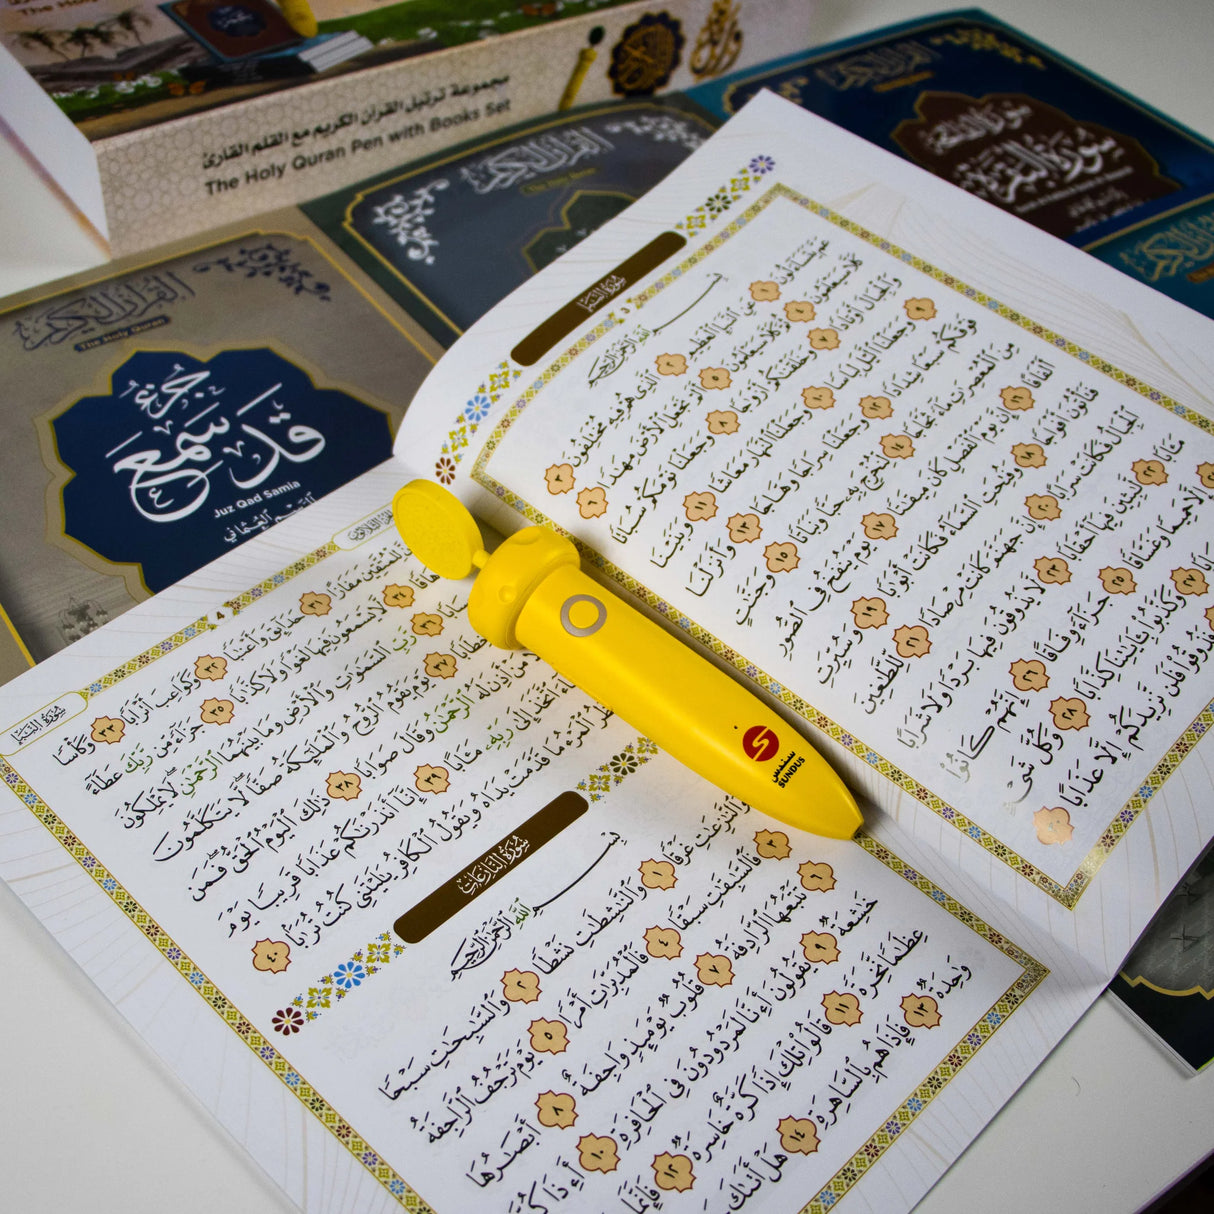 The Holy
مجموعة ترتيل القرآن الكريم مع القلم القارئ
The Holy Quran Pen with Books Set
القرآن الكريم
The Holy Quran
سورة الفاتحة
سورة البقرة
القرآن الكريم
The Holy Quran
جزء
قد سمع
Juz Qad Samia
الرسم العثماني
سورة النبإ
٣
بِسْمِ ٱللَّهِ ٱلرَّحْمَٰنِ ٱلرَّحِيمِ
عَمَّ يَتَسَآءَلُونَ ١ عَنِ ٱلنَّبَإِ ٱلْعَظِيمِ ٢ ٱلَّذِى هُمْ فِيهِ مُخْتَلِفُونَ ٣
كَلَّا سَيَعْلَمُونَ ٤ ثُمَّ كَلَّا سَيَعْلَمُونَ ٥ أَلَمْ نَجْعَلِ ٱلْأَرْضَ مِهَٰدًا ٦
وَٱلْجِبَالَ أَوْتَادًا ٧ وَخَلَقْنَٰكُمْ أَزْوَٰجًا ٨ وَجَعَلْنَا نَوْمَكُمْ سُبَاتًا
٩ وَجَعَلْنَا ٱلَّيْلَ لِبَاسًا ١٠ وَجَعَلْنَا ٱلنَّهَارَ مَعَاشًا ١١ وَبَنَيْنَا
فَوْقَكُمْ سَبْعًا شِدَادًا ١٢ وَجَعَلْنَا سِرَاجًا وَهَّاجًا ١٣ وَأَنزَلْنَا
مِنَ ٱلْمُعْصِرَٰتِ مَآءً ثَجَّاجًا ١٤ لِّنُخْرِجَ بِهِۦ حَبًّا وَنَبَاتًا ١٥ وَجَنَّٰتٍ
أَلْفَافًا ١٦ إِنَّ يَوْمَ ٱلْفَصْلِ كَانَ مِيقَٰتًا ١٧ يَوْمَ يُنفَخُ فِى ٱلصُّورِ
فَتَأْتُونَ أَفْوَاجًا ١٨ وَفُتِحَتِ ٱلسَّمَآءُ فَكَانَتْ أَبْوَٰبًا ١٩ وَسُيِّرَتِ
ٱلْجِبَالُ فَكَانَتْ سَرَابًا ٢٠ إِنَّ جَهَنَّمَ كَانَتْ مِرْصَادًا ٢١ لِّلطَّٰغِينَ
مَـَٔابًا ٢٢ لَّٰبِثِينَ فِيهَآ أَحْقَابًا ٢٣ لَّا يَذُوقُونَ فِيهَا بَرْدًا وَلَا شَرَابًا
إِلَّا حَمِيمًا وَغَسَّاقًا ٢٥ جَزَآءً وِفَاقًا ٢٦ إِنَّهُمْ كَانُوا۟
٢٧ وَكَذَّبُوا۟ بِـَٔايَٰتِنَا كِذَّابًا ٢٨ وَكُلَّ شَىْءٍ
فَذُوقُوا۟ فَلَن نَّزِيدَكُمْ إِلَّا عَذَابًا ٣٠
سندس
SUNDUS
٤
سورة النبإ
لِلْمُتَّقِينَ مَفَازًا ٣١ حَدَآئِقَ وَأَعْنَٰبًا ٣٢ وَكَوَاعِبَ أَتْرَابًا ٣٣ وَكَأْسًا
دِهَاقًا ٣٤ لَّا يَسْمَعُونَ فِيهَا لَغْوًا وَلَا كِذَّٰبًا ٣٥ جَزَآءً مِّن رَّبِّكَ عَطَآءً
٣٦ رَّبِّ ٱلسَّمَٰوَٰتِ وَٱلْأَرْضِ وَمَا بَيْنَهُمَا ٱلرَّحْمَٰنِ لَا يَمْلِكُونَ
٣٧ يَوْمَ يَقُومُ ٱلرُّوحُ وَٱلْمَلَٰٓئِكَةُ صَفًّا لَّا يَتَكَلَّمُونَ
مَنْ أَذِنَ لَهُ ٱلرَّحْمَٰنُ وَقَالَ صَوَابًا ٣٨ ذَٰلِكَ ٱلْيَوْمُ ٱلْحَقُّ فَمَن
ٱتَّخَذَ إِلَىٰ رَبِّهِۦ مَـَٔابًا ٣٩ إِنَّآ أَنذَرْنَٰكُمْ عَذَابًا قَرِيبًا يَوْمَ
ٱلْمَرْءُ مَا قَدَّمَتْ يَدَاهُ وَيَقُولُ ٱلْكَافِرُ يَٰلَيْتَنِى كُنتُ تُرَٰبًۢا ٤٠
سورة النازعات
بِسْمِ ٱللَّهِ ٱلرَّحْمَٰنِ ٱلرَّحِيمِ
وَٱلنَّٰزِعَٰتِ غَرْقًا ١ وَٱلنَّٰشِطَٰتِ نَشْطًا ٢ وَٱلسَّٰبِحَٰتِ سَبْحًا
٣ فَٱلسَّٰبِقَٰتِ سَبْقًا ٤ فَٱلْمُدَبِّرَٰتِ أَمْرًا ٥ يَوْمَ تَرْجُفُ ٱلرَّاجِفَةُ
٦ تَتْبَعُهَا ٱلرَّادِفَةُ ٧ قُلُوبٌ يَوْمَئِذٍ وَاجِفَةٌ ٨ أَبْصَٰرُهَا
خَٰشِعَةٌ ٩ يَقُولُونَ أَءِنَّا لَمَرْدُودُونَ فِى ٱلْحَافِرَةِ ١٠ أَءِذَا كُنَّا
عِظَٰمًا نَّخِرَةً ١١ قَالُوا۟ تِلْكَ إِذًا كَرَّةٌ خَاسِرَةٌ ١٢ فَإِنَّمَا
وَٰحِدَةٌ ١٣ فَإِذَا هُم بِٱلسَّاهِرَةِ ١٤ هَلْ أَتَىٰكَ